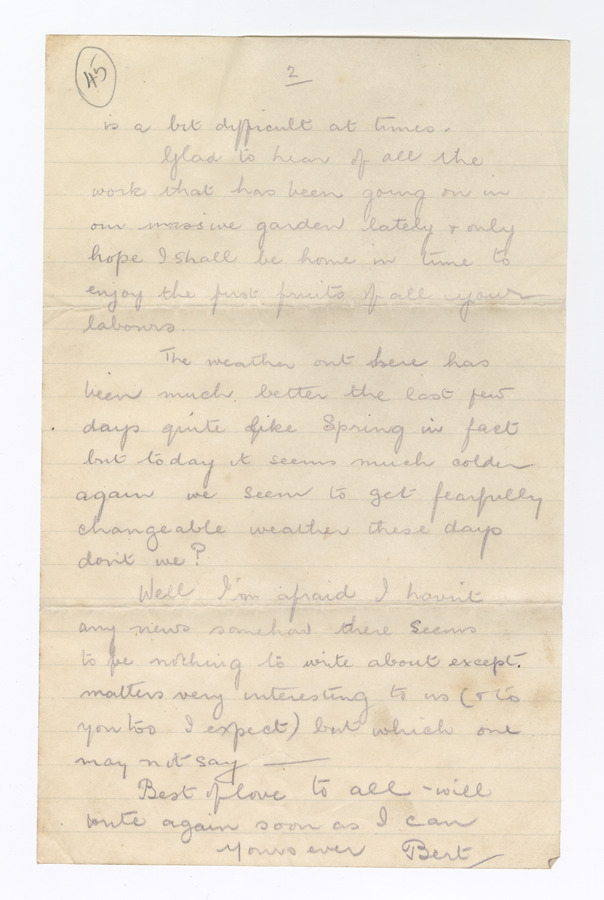 45
2
is a bit difficult at times.
Glad to hear of all the
work that has been going on in
our massive garden lately & only
hope I shall be home in time to
enjoy the first fruits of all your
labours.
The weather out here has
been much better the last few
days quite like Spring in fact
but today it seems much colder
again we seem to get fearfully
changeable weather these days
don't we?
Well I'm afraid I havn't
any news somehow there seems
to be nothing to write about except
matters very interesting to us (& to
you too I expect) but which one
may not say —
Best of love to all - will
write again soon as I can
Yours ever Bert